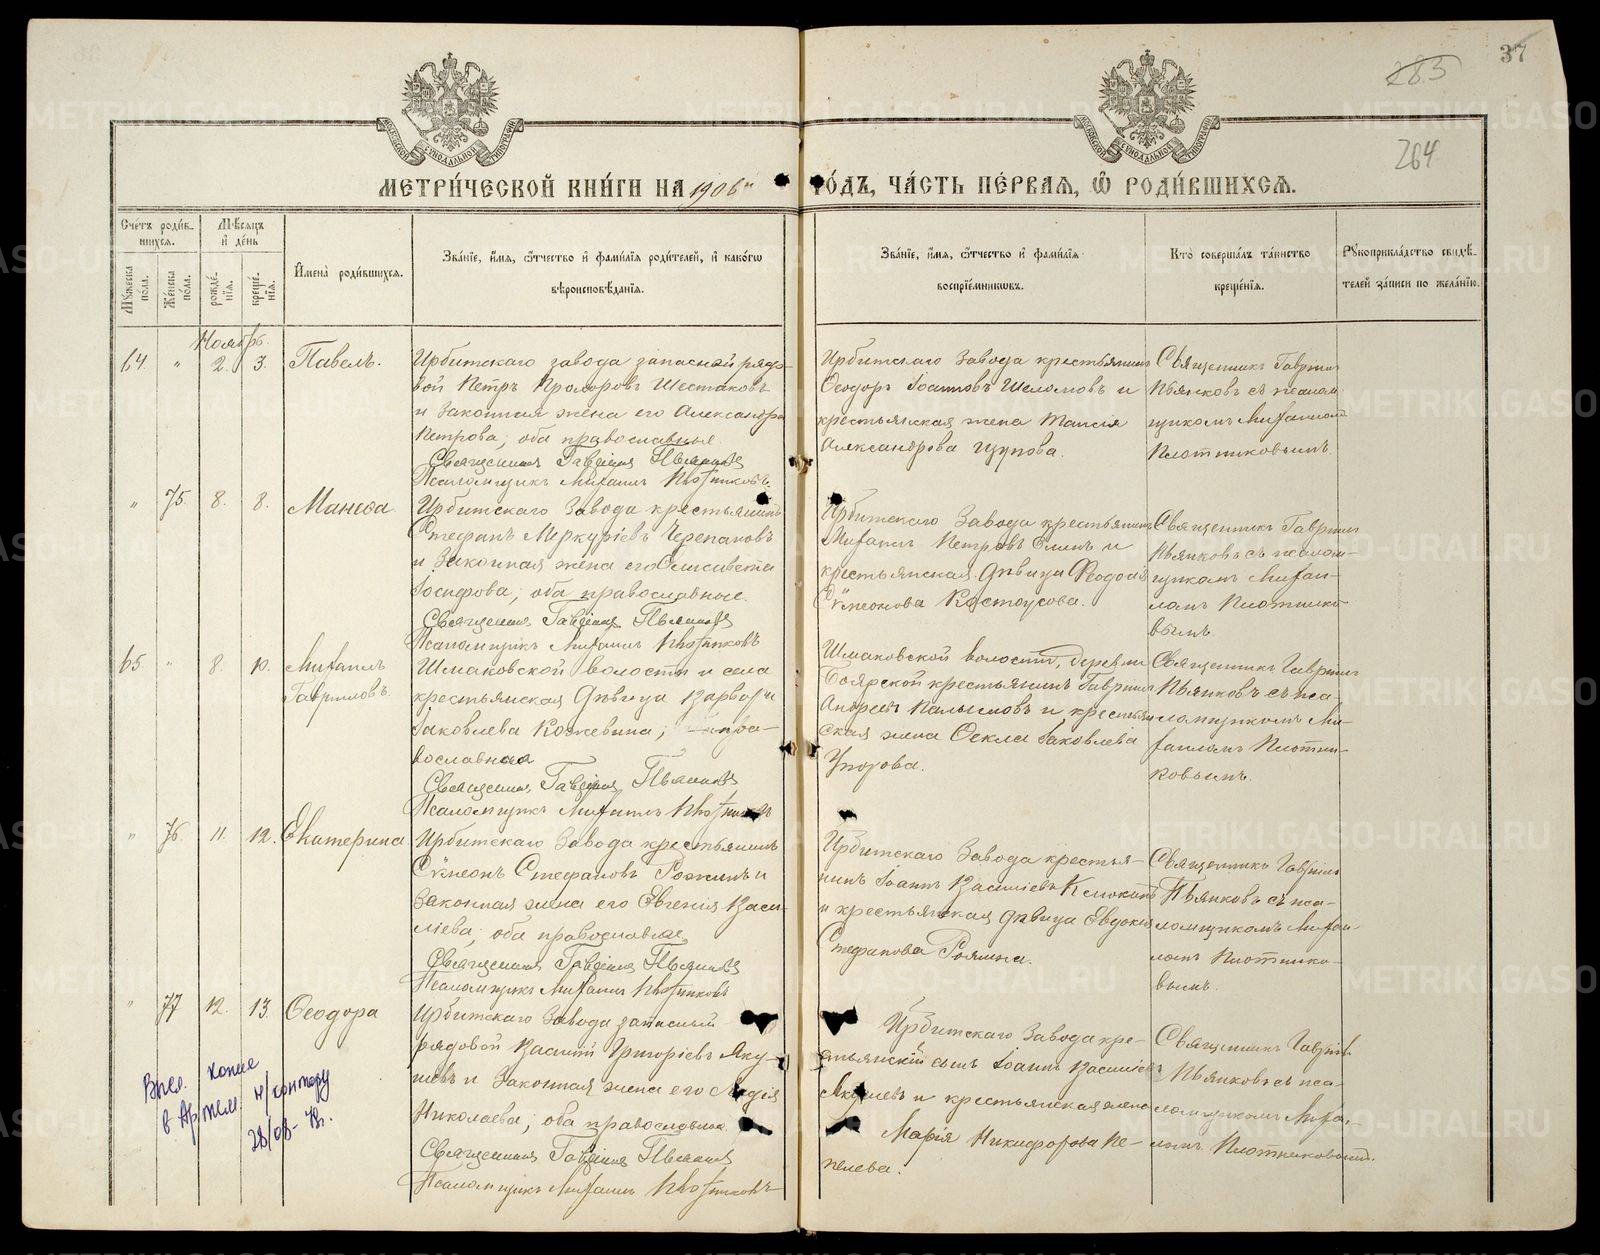 37
285
264
МОСКОВСКОЙ СѴНОДАЛЬНОЙ ТИПОГРАФІИ
МОСКОВСКОЙ СѴНОДАЛЬНОЙ ТИПОГРАФІИ
МЕТРИ́ЧЕСКОЙ КНИ́ГИ НА 1906й ГО́ДЪ, ЧА́СТЬ ПЕ́РВАЯ, Ѡ РОДИ́ВШИХСЯ.
Сче́тъ роди́в-
шихся.
Мꙋжеска по́ла.
Же́нска по́ла.
Мѣ́сяцъ
и де́нь
рожде́-
нїя.
креще́-
нїя.
И҆мена̀ роди́вшихся.
Зва́нїе, и҆́мя, ѻ҆́тчество и҆ фами́лїя роди́телей, и҆ како́гѡ
вѣроисповѣ́данїя.
Зва́нїе, и҆́мя, ѻ҆́тчество и҆ фами́лїя
воспрїе́мникѡвъ.
Кто̀ соверша́лъ та́инство
креще́нїя.
Рꙋкоприкла́дство свидѣ́-
телей за́писи по жела́нїю.
Ноябрь.
64. " 2. 3. Павелъ.
Ирбитскаго завода запасной рядо-
вой Петръ Прохоровъ Шестаковъ
и законная жена его Александра
Петрова; оба православные
Священникъ Гавріилъ Пьянковъ
Псаломщикъ Михаилъ Плотниковъ
Ирбитскаго Завода крестьянинъ
Ѳеодоръ Іоанновъ Шеломовъ и
крестьянская жена Таисія
Александрова
Священникъ Гавріилъ
Пьянковъ съ псалом-
щикомъ Михаиломъ
Плотниковымъ.
" 75 8. 8. Манеѳа
Ирбитскаго Завода крестьянинъ
Стефанъ Меркуріевъ Черепановъ
и Законная жена его Елисавета
Іосифова; оба православные.
Священникъ Гавріилъ Пьянковъ
Псаломщикъ Михаилъ Плотниковъ
Ирбитскаго Завода крестьянинъ
Михаилъ Петровъ и
крестьянская дѣвица Ѳеодосія
Сѵмеонова Костоусова.
Священникъ Гавріилъ
Пьянковъ съ псалом-
щикомъ Михаи-
ломъ Плотнико-
вымъ.
65 " 8. 10. Михаилъ
Гавриловъ.
Шмаковской волости и села
крестьянская дѣвица Варвара
Іаковлева Кожевина; пра-
вославная
Священникъ Гавріилъ Пьянковъ
Псаломщикъ Михаилъ Плотниковъ
Шмаковской волости, деревни
Боярской крестьянинъ Гавріилъ
Андреевъ и крестьян
ская жена Ѳекла Іаковлева
Упорова.
Священникъ Гавріилъ
Пьянковъ съ пса-
ломщикомъ Ми-
хаиломъ Плотни-
ковымъ.
" 76. 11. 12. Екатерина
Ирбитскаго Завода крестьянинъ
Сѵмеонъ Стефановъ и
Законная жена его Евгенія Васи-
ліева; оба православные
Священникъ Гавріилъ Пьянковъ
Псаломщикъ Михаилъ Плотниковъ
Ирбитскаго Завода крестья-
нинъ Іоаннъ Василіевъ
и крестьянская дѣвица Евдокія
Стефанова
Священникъ Гавріилъ
Пьянковъ съ пса-
ломщикомъ Михаи-
ломъ Плотнико-
вымъ.
" 77 12. 13. Ѳеодора
Ирбитскаго Завода запасный
рядовой Василій Григоріевъ Яку-
шевъ и Законная жена его Лидія
Николаева; оба православные
Священникъ Гавріилъ Пьянковъ
Псаломщикъ Михаилъ Плотниковъ
Ирбитскаго Завода кре-
стьянскій сынъ Іоаннъ Василіевъ
Якушевъ и крестьянская жена
Марія Никифорова Пе-
пелева.
Священникъ Гавріилъ
Пьянковъ съ пса-
ломщикомъ Михаи-
ломъ Плотниковымъ.
копие
в Артем. н/контору
28/08-
METRIKI.GASO-URAL.RU